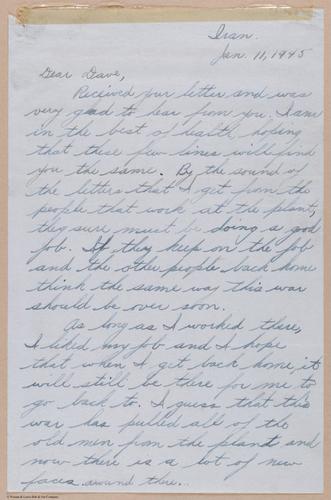 Iran.
Jan. 11, 1945
Dear Dave,
Received your letter and was
very glad to hear from you. I am
in the best of health, hoping
that these few lines will find
you the same. By the sound of
the letters that I get from the
people that work at the plant,
they sure must be doing a good
job. If they keep on the job
and the other people back home
think the same way this war
should be over soon.
As long as I worked there,
I liked my job and I hope
that when I get back home, it
will still be there for me to
go back to. I guess that this
war has pulled all of the
old men from the plant and
now there is a lot of new
faces around there..